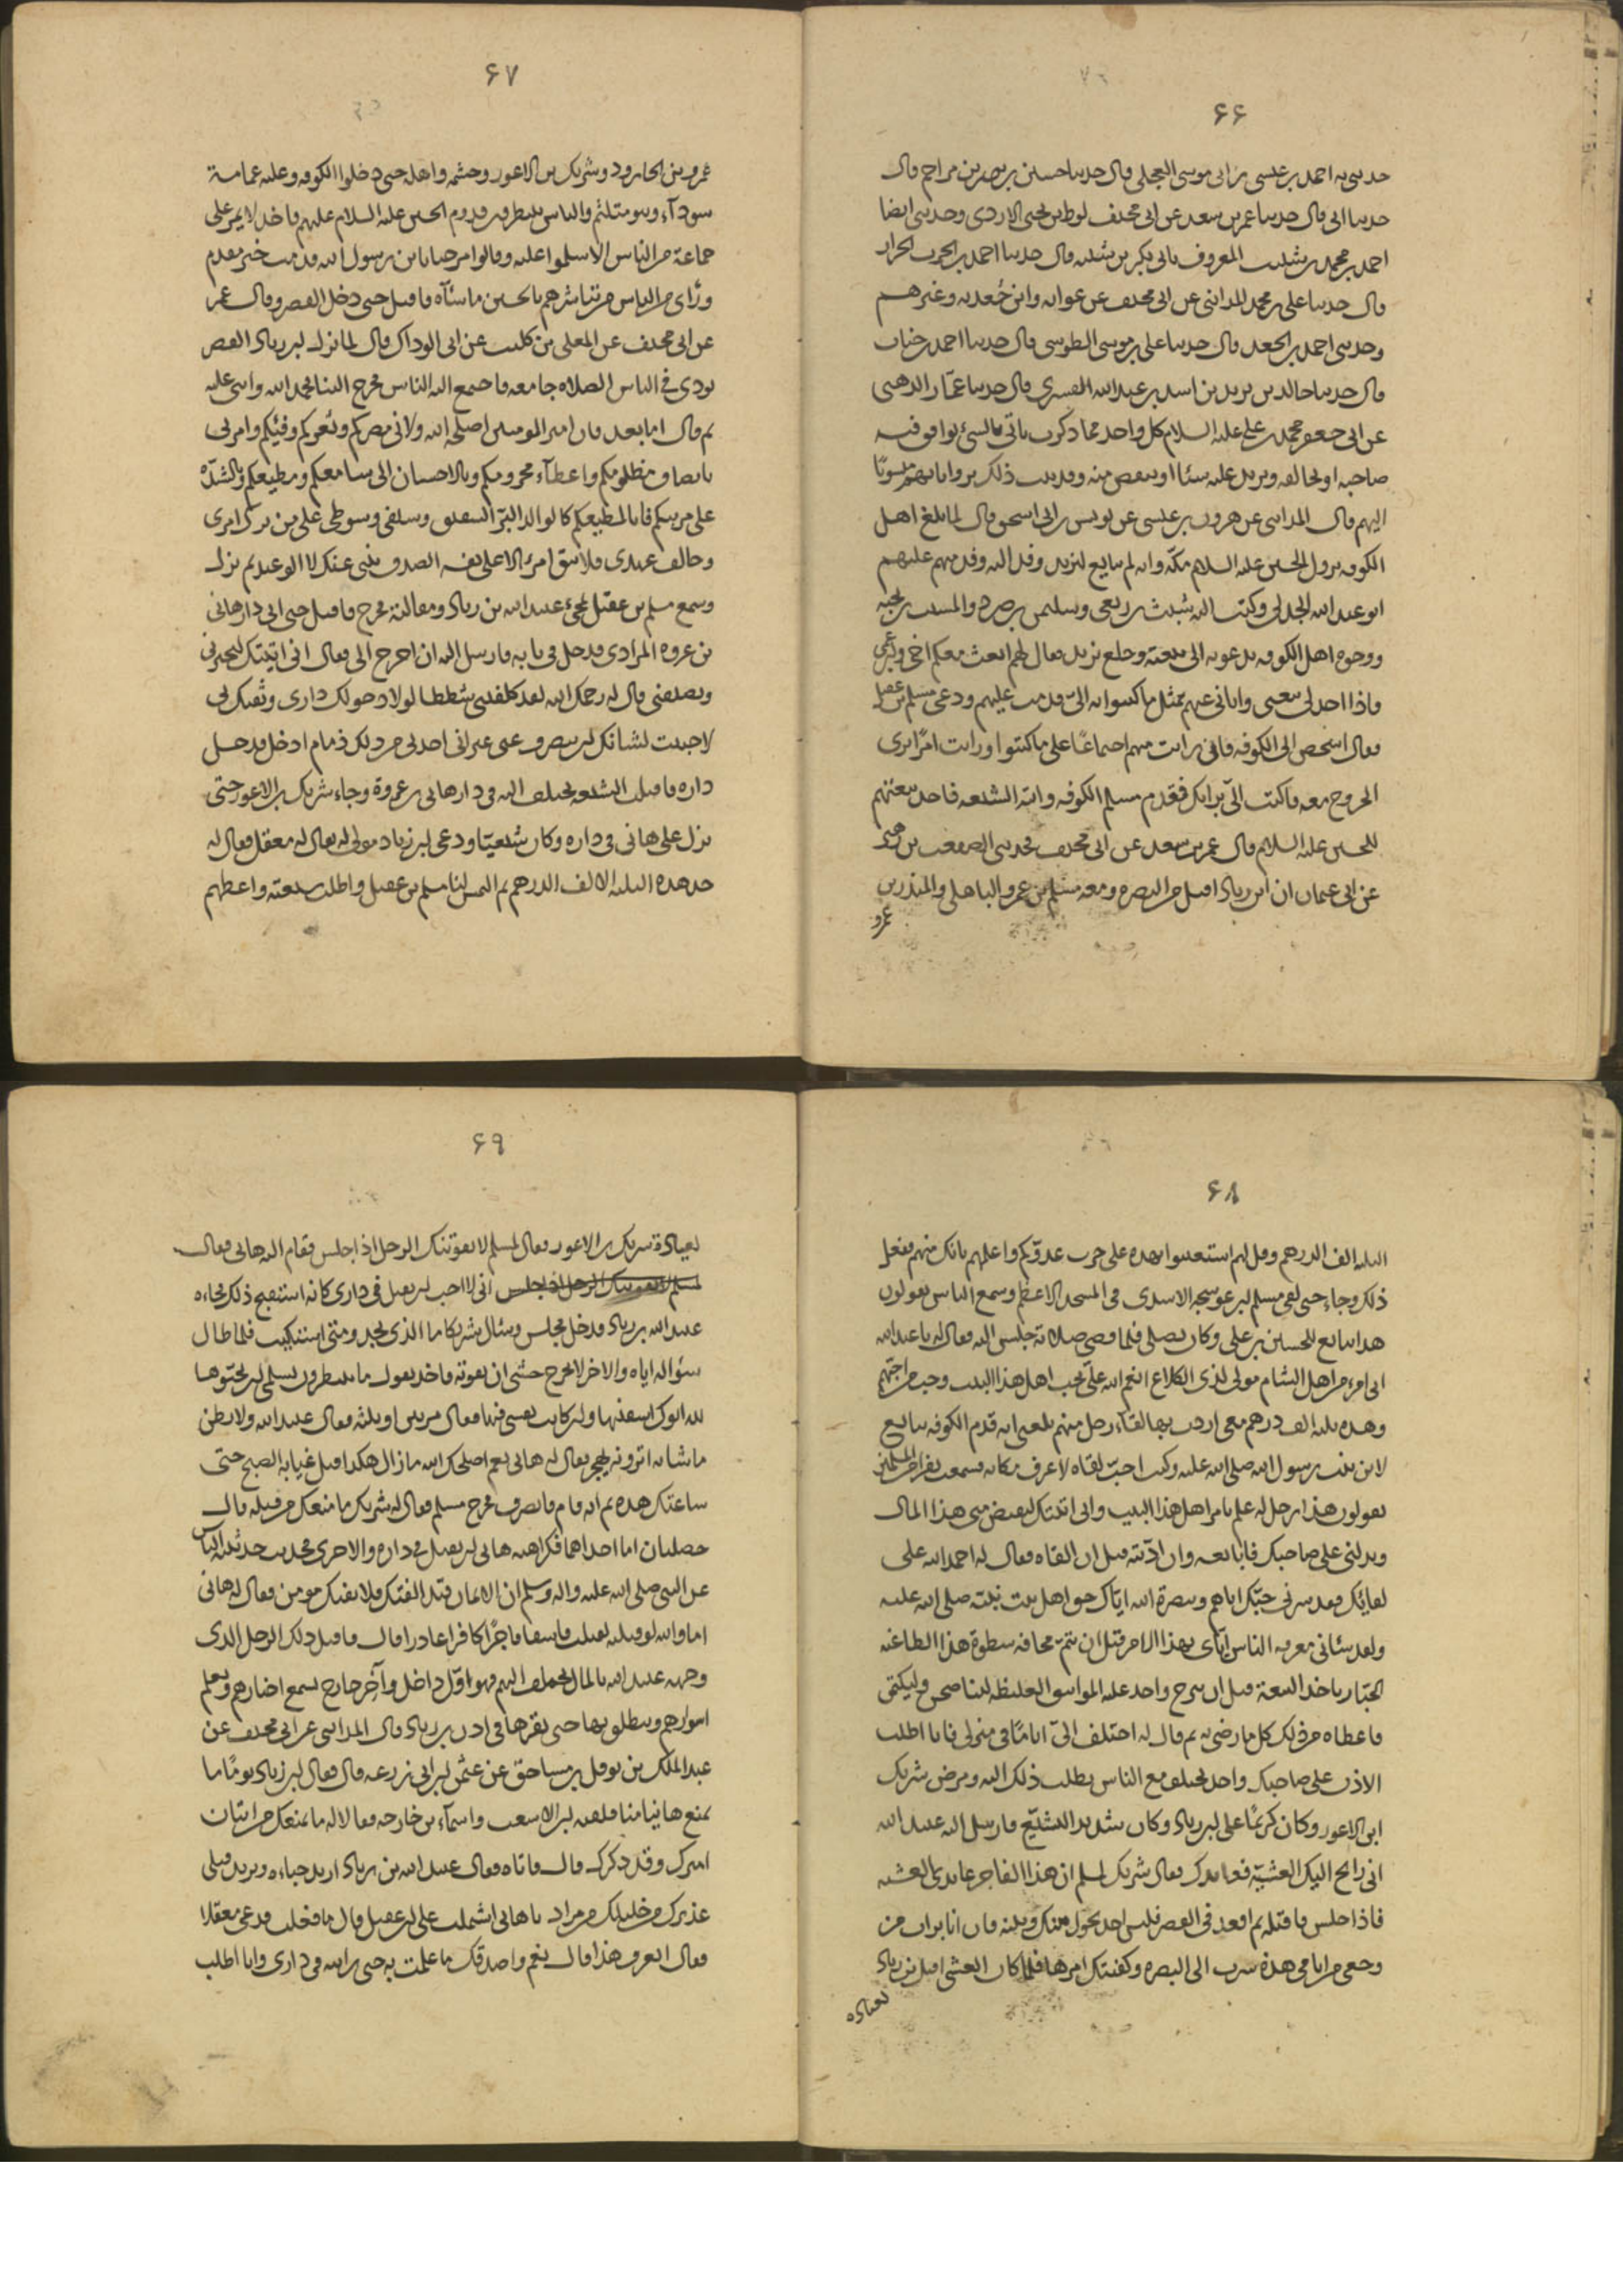 ۶۶
حدثنى به احمد بن عيسى بن ابى موسى العجلى قال حدثنا حسين بن نصر بن مزاحم قال
حدثنا ابى قال حدثنا عمر بن سعد عن ابى مخنف لوط بن يحيى الازدى وحدثنى ايضا
احمد بن محمد بن شبيب المعروف بابى بكر بن شيبه قال حدثنا احمد بن الحرث الخراز
قال حدثنا على بن محمد المداينى عن ابى مخنف عن عوانه وابن جُعدبه وغيرهم
وحدثنى احمد بن الجعد قال حدثنا على بن موسى الطوسى قال حدثنا احمد بن جناب
قال حدثنا خالد بن يزيد بن اسد بن عبد الله القسرى قال حدثنا عمّار الدهنى
عن ابى جعفر محمد بن على عليه السلام كل واحد مما ذكرت ياتى بالشئ يوافق فيه
صاحبه او يخالفه ويزيد عليه شئا او ينقص منه وقد ثبت ذلك بروايا تهم منسوبًا
اليهم قال المداينى عن هرون بن عيسى عن يونس بن ابى اسحق قال لما بلغ اهل
الكوفه نزول الحسين عليه السلام مكّه وانه لم يبايع ليزيد وفد اليه وفد منهم عليهم
ابو عبد الله الجدلى وكتب اليه شبث بن ربعى وسليمن بن صرد والمسيب بن نجبه
ووجوه اهل الكوفه يدعونه الى بيعته وخلع يزيد فقال لهم ابعث معكم اخى وابن عمى
فاذا اخذ لى بيعتى واتانى عنهم بمثل ما كتبوا به الىّ قدمت عليهم ودعى مسلم بن عقيل
فقال اشخص الى الكوفه فان رايت منهم اجتماعًا على ما كتبوا ورايت امرًا ترى
الخروج معه فاكتب الىّ برايك فقدم مسلم الكوفه واتته الشيعه فاخذ بيعتهم
للحسين عليه السلام قال عمر بن سعد عن ابى مخنف فحدثنى الصقعب بن زهير
عن ابى عثمان ان ابن زياد اقبل من البصره ومعه مسلم بن عمرو الباهلى والمنذر بن
عمرو
۶۷
عمرو بن الجارود وشريك بن الاعور وحشمه واهله حتى دخلوا الكوفه وعليه عمامة
سودآء وهو متلثم والناس ينتظرون قدوم الحسين عليه السلام عليهم فاخذ لا يمر على
جماعة من الناس الا سلموا عليه وقالوا مرحبا يا بن رسول الله قدمت خير مقدم
ورأى من الناس من تباشرهم بالحسين ما سآه فاقبل حتى دخل القصر وقال عمر
عن ابى مخنف عن المعلى بن كليب عن ابى الوداك قال لما نزل ابن زياد القصر
نودى فى الناس الصلاه جامعه فاجتمع اليه الناس فخرج الينا فحمد الله واثنى عليه
ثم قال اما بعد فان امير المومنين اصلحه الله ولانى مصركم وثغركم وفيئكم وامرنى
بانصاف مظلومكم واعطآء محرومكم وبالاحسان الى سامعكم ومطيعكم وبالشدّه
على مريبكم فانا لمطيعكم كالوالد البرّ الشفيق وسيفى وسوطى على من ترك امرى
وخالف عهدى فليبق امرؤ الا على نفسه الصدق ينبى عنك لا الوعيد ثم نزل
وسمع مسلم بن عقيل بمجئ عبيد الله بن زياد ومقالته فخرج فاقبل حتى اتى دار هانى
بن عروه المرادى فدخل فى بابه فارسل اليه ان اخرج الى فقال انى اتيتك لتجيرنى
وتضيفنى قال له رحمك الله لقد كلفتنى شططا لولا دخولك دارى وثقتك بى
لاحببت لشانك ان تنصرف عنى غير انى اخذنى من ذلك ذمام ادخل فدخل
داره فاقبلت الشيعه تختلف اليه فى دار هانى بن عروة وجاء شريك بن الاعور حتى
نزل على هانى فى داره وكان شيعيّا ودعى ابن زياد مولى له يقال له معقل فقال له
خذ هذه الثلثة الالف الدرهم ثم التمس لنا مسلم بن عقيل واطلب شيعته واعطهم
۶۸
الثلثه الف الدرهم وقل لهم استعينوا بهذه على حرب عدوّكم واعلمهم بانك منهم ففعل
ذلك وجاء حتى لقى مسلم بن عوسجه الاسدى فى المسجد الاعظم وسمع الناس يقولون
هذا يبايع للحسين بن على وكان يصلى فلما قضى صلاته جلس اليه فقال له يا عبد الله
انى امرؤ من اهل الشام مولى لذى الكلاع انعم الله علىّ بحب اهل هذا البيت وحب من احبّهم
وهذه ثلثه الف درهم معى اردت بها لقآء رجل منهم بلغنى انه قدم الكوفه يبايع
لابن بنت رسول الله صلى الله عليه وكنت احبّ لقاه لاعرف مكانه فسمعت نفرا من المسلمين
يقولون هذا رجل له علم بامر اهل هذا البيت وانى اتيتك لتقبض منى هذا المال
وتدلنى على صاحبك فابايعه وان اذنته قبل ان القاه فقال له احمد الله على
لقائك فقد سرنى حبّك اياهم وبنصرة الله اياك حق اهل بيت نبيّه صلى الله عليه
ولقد سئانى معرفه الناس ايّاى بهذا الامر قبل ان يتمّ مخافه سطوة هذا الطاغيه
الجبّار ياخذ البيعة قبل ان يبرح واخذ عليه المواثيق الغليظه ليناصحن وليكتمن
فاعطاه من ذلك كل ما رضى به ثم قال له اختلف الىّ ايامًا فى منزلى فانا اطلب
الاذن على صاحبك واخذ يختلف مع الناس يطلب ذلك اليه ومرض شريك
ابن الاعور وكان كريمًا على ابن زياد وكان شديد التشيّع فارسل اليه عبيد الله
انى رايح اليك العشيّة فعايدك فقال شريك لمسلم ان هذا الفاجر عايدى العشيه
فاذا جلس فاقتله ثم اقعد فى القصر فليس احد يحول بينك وبينه فان انا برات من
وجعى من ايامى هذه سرت الى البصره وكفيتك امرها فلما كان العشى اقبل ابن زياد
لعياده
۶۹
لعيادة شريك بن الاعور فقال لمسلم لا يفوتنك الرجل اذا جلس فقام اليه هانى فقال
لمسلم لا يفوتنك الرجل اذا جلس انى لا احب ان يقتل فى دارى كانه استقبح ذلك فجاءه
عبيد الله بن زياد فدخل فجلس وسئال شريكا ما الذى تجد ومتى اشتكيت فلما طال
سؤاله اياه والاخر لا يخرج خشى ان يفوته فاخذ يقول ما تنتظرون بسلمى ان تحيّوها
لله ابوك اسقنيها وان كانت نفسى فيها فقال مرتين او ثلثه فقال عبيد الله ولا يفطن
ما شانه اترونه يهجر فقال له هانى نعم اصلحك الله ما زال هكذا قبل غيابه الصبح حتى
ساعتك هذه ثم انه قام فانصرف فخرج مسلم فقال له شريك ما منعك من قتله قال
خصلتان اما احداهما فكراهيه هانى ان يقتل فى داره والاخرى فحديث حدثنيه الناس
عن النبى صلى الله عليه واله وسلم ان الايمان قيّد الفتك فلا يفتك مومن فقال له هانى
اما والله لو قتلته لقتلت فاسقا فاجرًا كافرا غادرا قال فاقبل ذلك الرجل الذى
وجهه عبيد الله بالمال يختلف اليهم فهو اوّل داخل وآخر خارج يسمع اخبارهم ويعلم
اسرارهم وينطلق بها حتى يقرها فى اذن ابن زياد قال المداينى عن ابى مخنف عن
عبد الملك بن نوفل بن مساحق عن عثمن بن ابى زرعه قال فقال ابن زياد يومًا ما
يمنع هانيا منا فلقيه ابن الاشعث واسمآء بن خارجه فقالا له ما يمنعك من اتيان
اميرك وقد ذكرك قال فاتاه فقال عبيد الله بن زياد اريد حباءه ويريد قتلى
عذيرك من خليلك من مراد يا هانى اشتملت على ابن عقيل قال ما فعلت فدعى معقلا
فقال اتعرف هذا قال نعم واصدقك ما علمت به حتى رايته فى دارى وانا اطلب